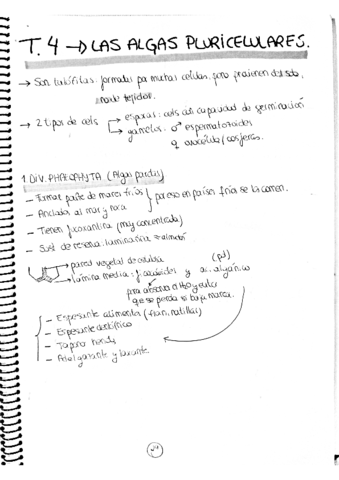 T.4 → LAS ALGAS PLURICELULARES.
→ Son talófitas: formadas por muchas células, pero
tejidos.
→ 2 tipos de cels
esporas: cels con capacidad de germinación
gametos: ♂ espermatozoides
♀
1. DIV. PHAEOPHYTA (Algas pardas)
- Forman parte de mares fríos
por eso en países fríos se la comen.
- Ancladas al mar y roca
- Tienen fucoxantina (muy concentrada)
- Sust de reserva: laminarina = almidón
pared vegetal de celulosa
lámina media: y ac. algínico
para absorber H2O y evitar
que se pierda si baja marea.
- Espesante alimentos (flan, natillas)
- Espesante dentífrico
- Tapona herida
- Adelgazante y laxante